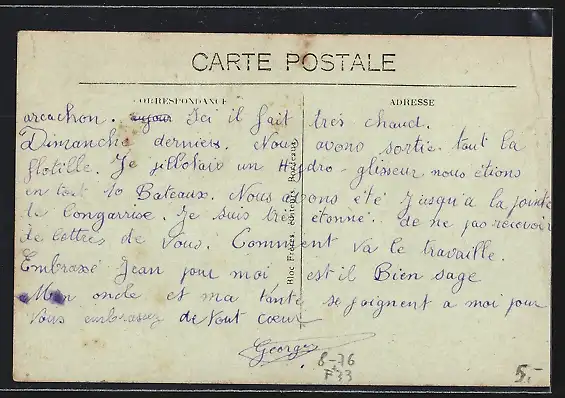 CARTE POSTALE
CORRESPONDANCE
ADRESSE
arcachon. aujour Ici il fait très chaud.
Dimanche derniers. Nous avons sortie tout la
flotille. Je pillotais un Hydro-glisseur nous étions
en tout 10 Bateaux. Nous avons été jusqu'a la pointe
de longarrise. Je suis très étonné. de ne pas recevoir
de lettres de Vous. Comment va le travaille.
Embrassé Jean pour moi est il Bien sage
Mon oncle et ma tante se joignent a moi pour
Vous embrassez de tout cœur
Georges
Bloc Frères, éditeurs Bordeaux
8-76
F33
5.-